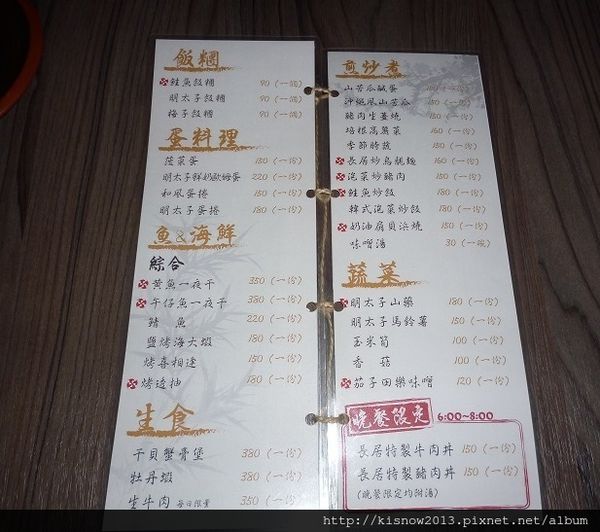 飯糰
鮭魚飯糰 90 (一個)
明太子飯糰 90 (一個)
梅子飯糰 90 (一個)
蛋料理
菠菜蛋 150 (一份)
明太子鮮奶歐姆蛋 220 (一份)
和風蛋捲 150 (一份)
明太子蛋捲 180 (一份)
魚&海鮮
綜合
黃魚一夜干 350 (一份)
午仔魚一夜干 380 (一份)
鯖魚 220 (一份)
鹽烤海大蝦 180 (一份)
烤喜相逢 180 (一份)
烤透抽 180 (一份)
生食
干貝蟹膏堡 380 (一份)
牡丹蝦 380 (一份)
生牛肉 每日限量 350 (一份)
煎炒煮
山苦瓜鹹蛋 (一份)
沖繩風山苦瓜 160 (一份)
豬肉生薑燒 160 (一份)
培根高麗菜 160 (一份)
季節時蔬 150 (一份)
長居炒烏龍麵 160 (一份)
泡菜炒豬肉 150 (一份)
鮭魚炒飯 180 (一份)
韓式泡菜炒飯 180 (一份)
奶油扇貝浜燒 150 (一份)
味噌湯 30 (一碗)
蔬菜
明太子山藥 180 (一份)
明太子馬鈴薯 150 (一份)
玉米筍 100 (一份)
香菇 100 (一份)
茄子田樂味噌 120 (一份)
晚餐限定 6:00~8:00
長居特製牛肉丼 150 (一份)
長居特製豬肉丼 150 (一份)
(晚餐限定均附湯)
http://kisnow2013.pixnet.net/album